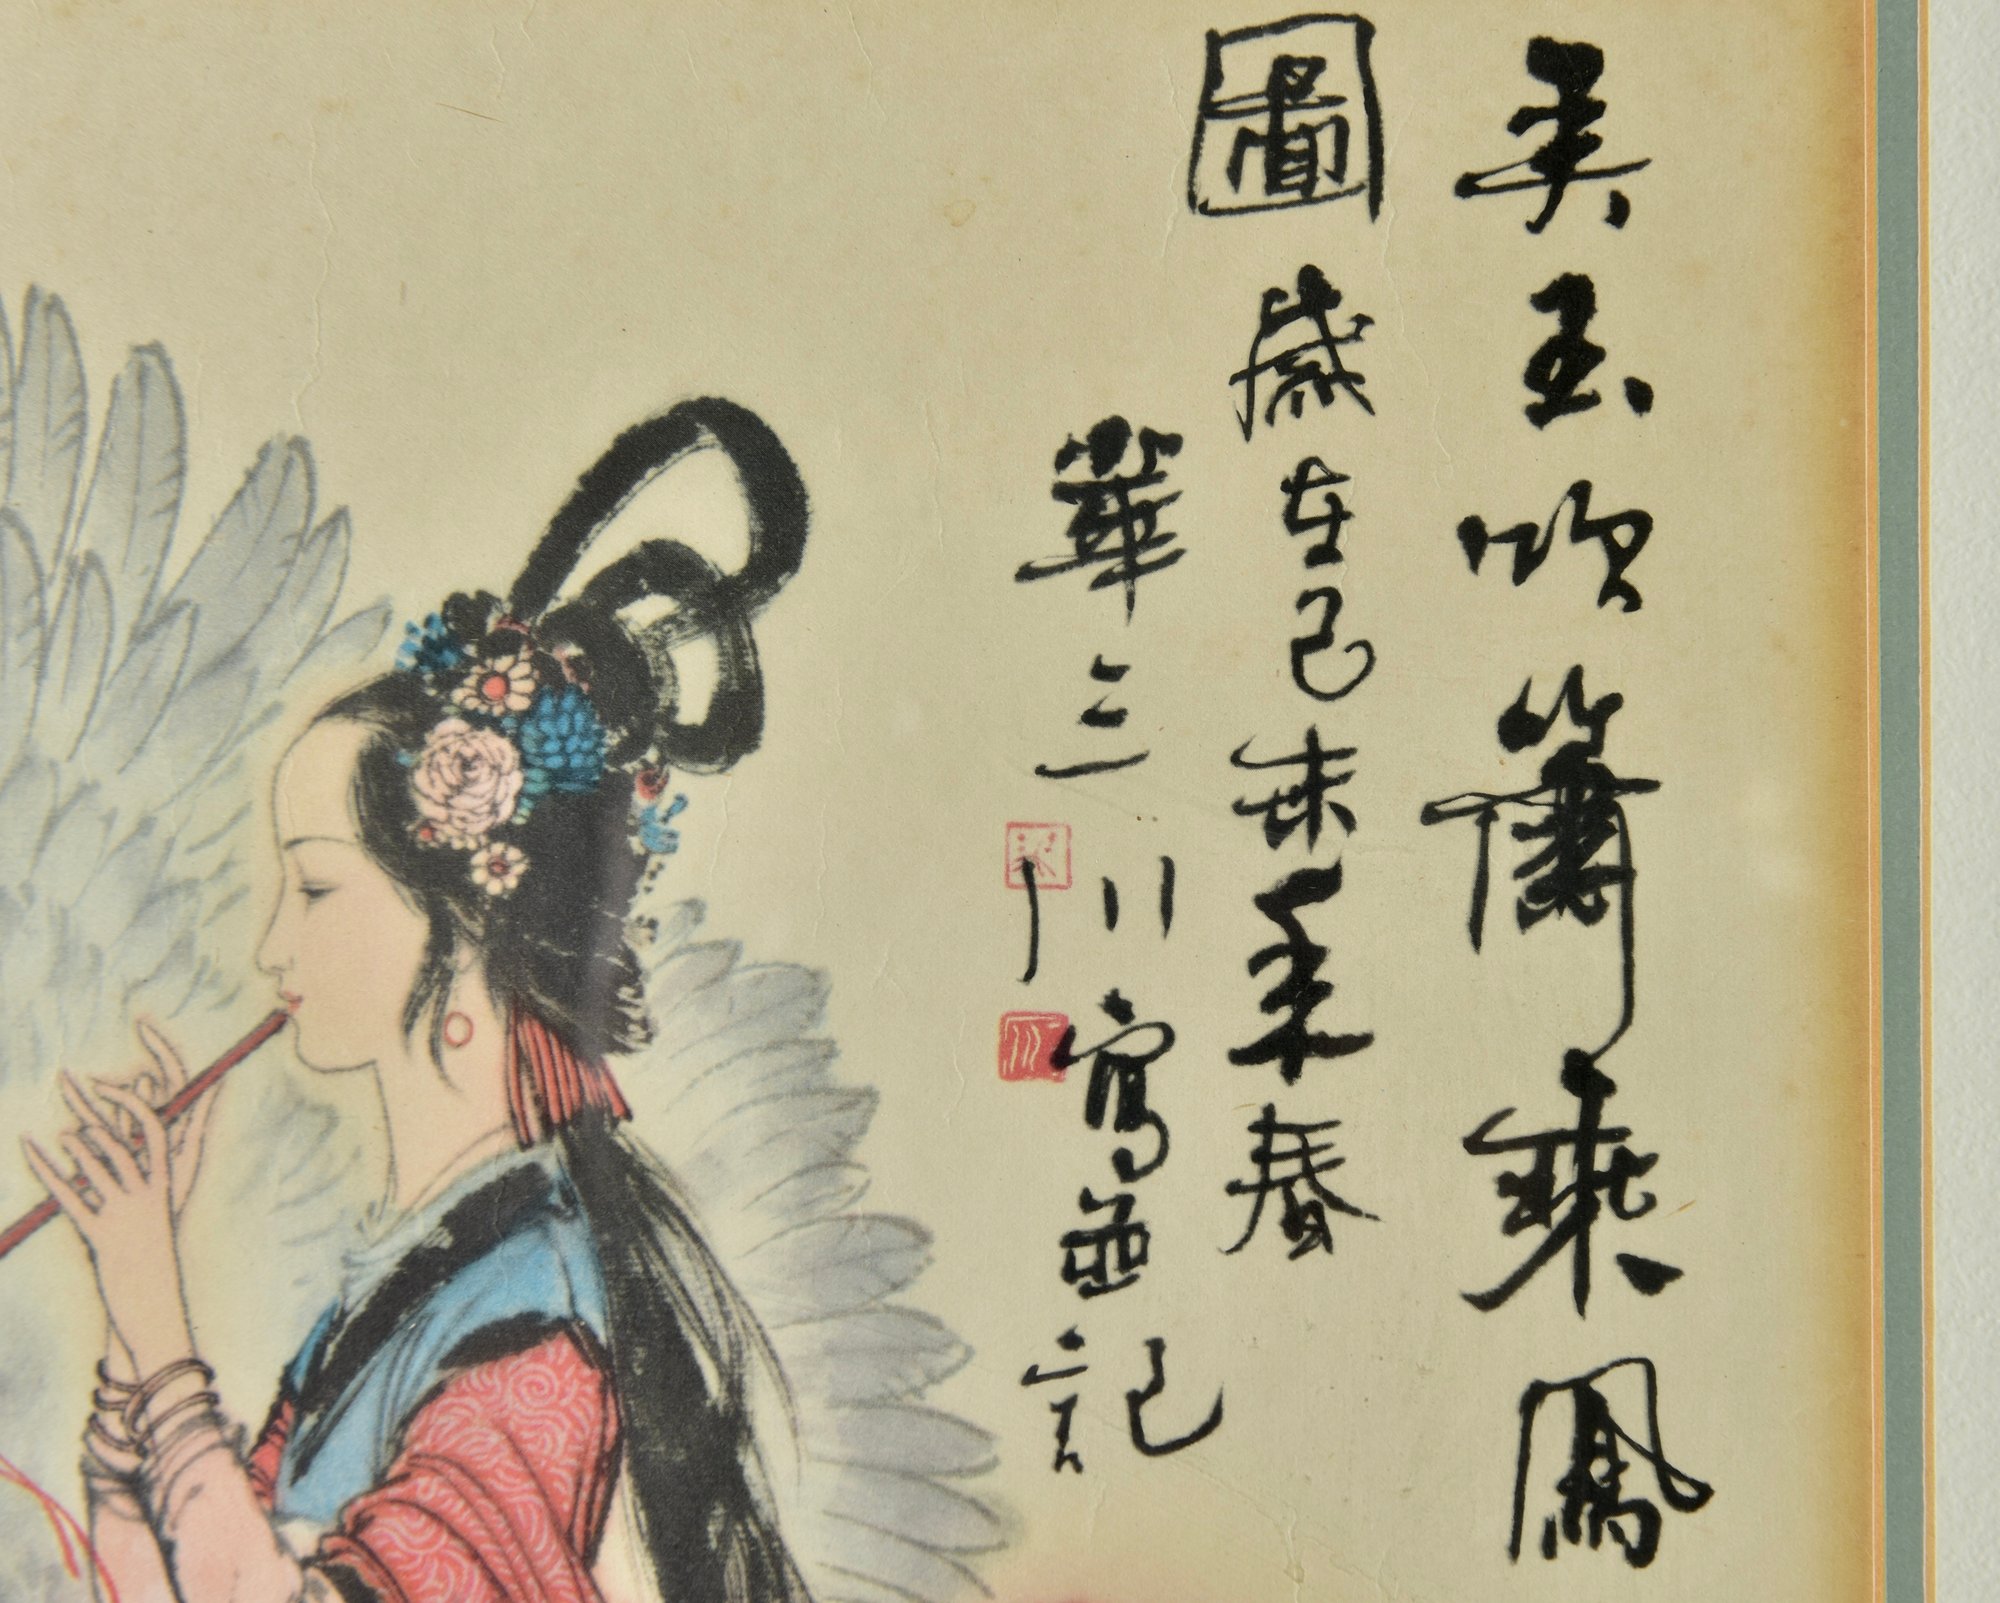 弄玉吹簫乘鳳
圖歲在己未季春
華三川寫並記
川